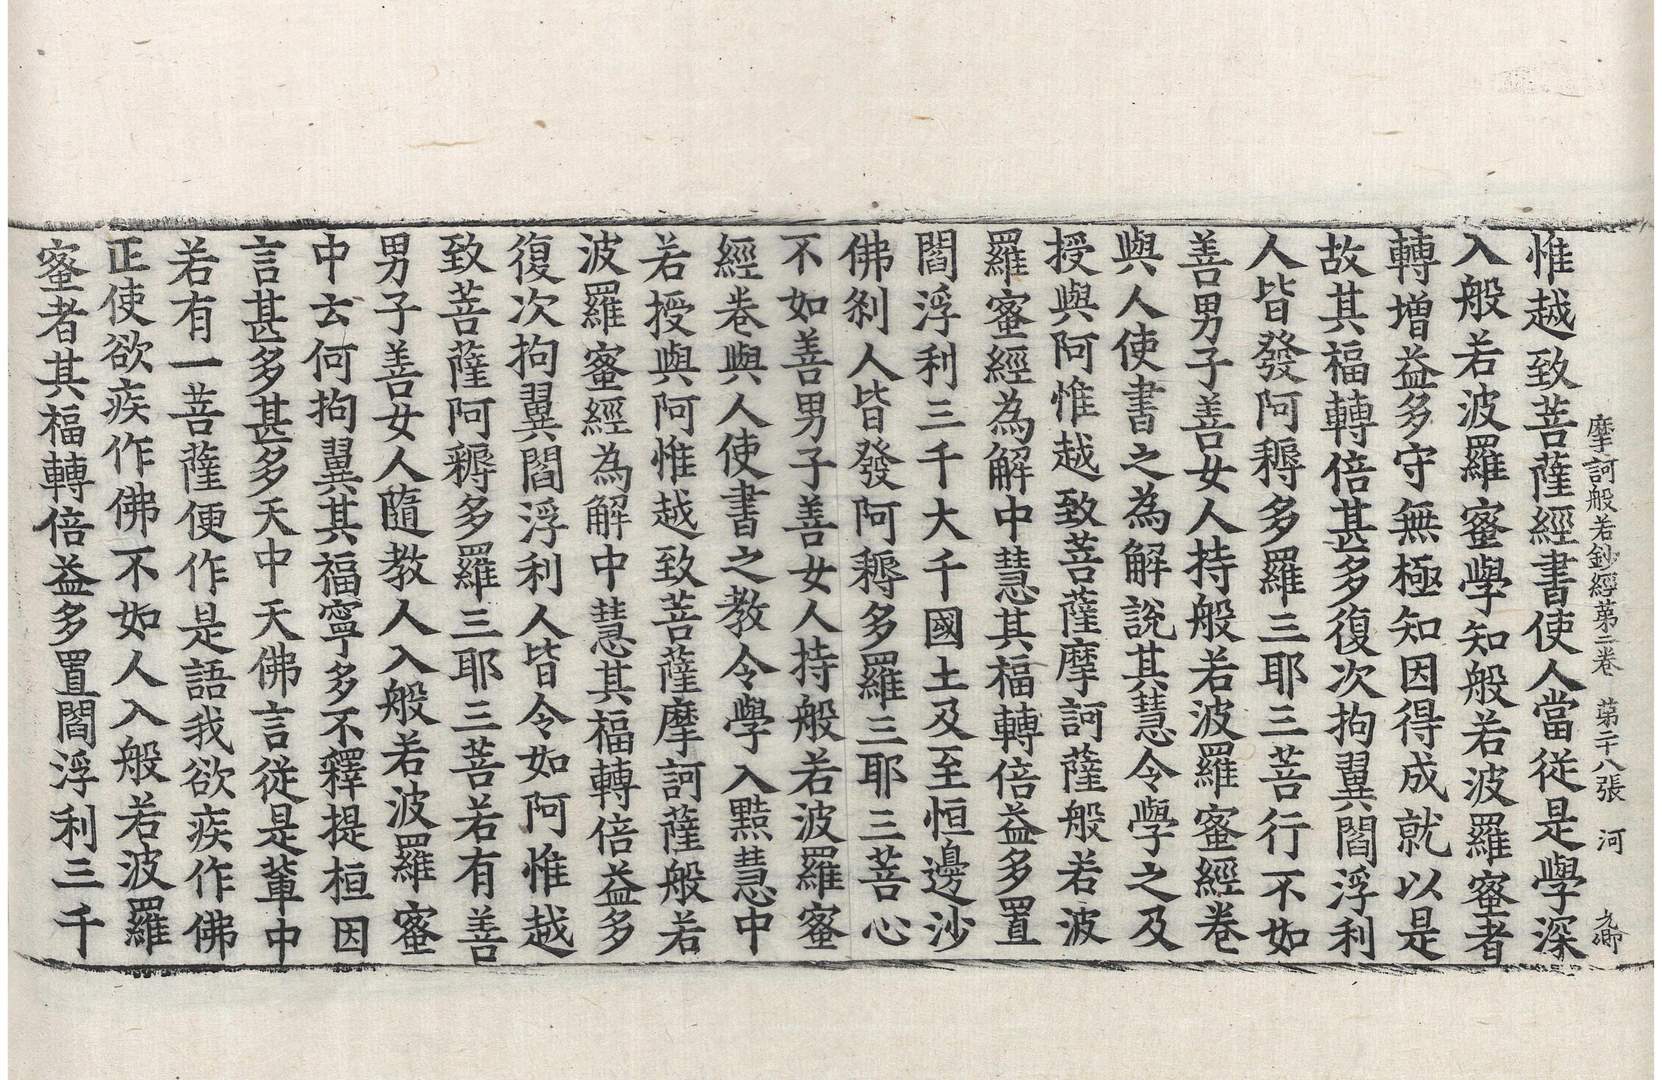 摩訶般若鈔經第二卷　第二十八張　河
惟越致菩薩經書使人當從是學深
入般若波羅蜜學知般若波羅蜜者
轉增益多守無極知因得成就以是
故其福轉倍甚多復次拘翼閻浮利
人皆發阿耨多羅三耶三菩行不如
善男子善女人持般若波羅蜜經卷
與人使書之為解說其慧令學之及
授與阿惟越致菩薩摩訶薩般若波
羅蜜經為解中慧其福轉倍益多置
閻浮利三千大千國土及至恒邊沙
佛剎人皆發阿耨多羅三耶三菩心
不如善男子善女人持般若波羅蜜
經卷與人使書之教令學入黠慧中
若授與阿惟越致菩薩摩訶薩般若
波羅蜜經為解中慧其福轉倍益多
復次拘翼閻浮利人皆令如阿惟越
致菩薩阿耨多羅三耶三菩若有善
男子善女人隨教人入般若波羅蜜
中云何拘翼其福寧多不釋提桓因
言甚多甚多天中天佛言從是輩中
若有一菩薩便作是語我欲疾作佛
正使欲疾作佛不如人入般若波羅
蜜者其福轉倍益多置閻浮利三千